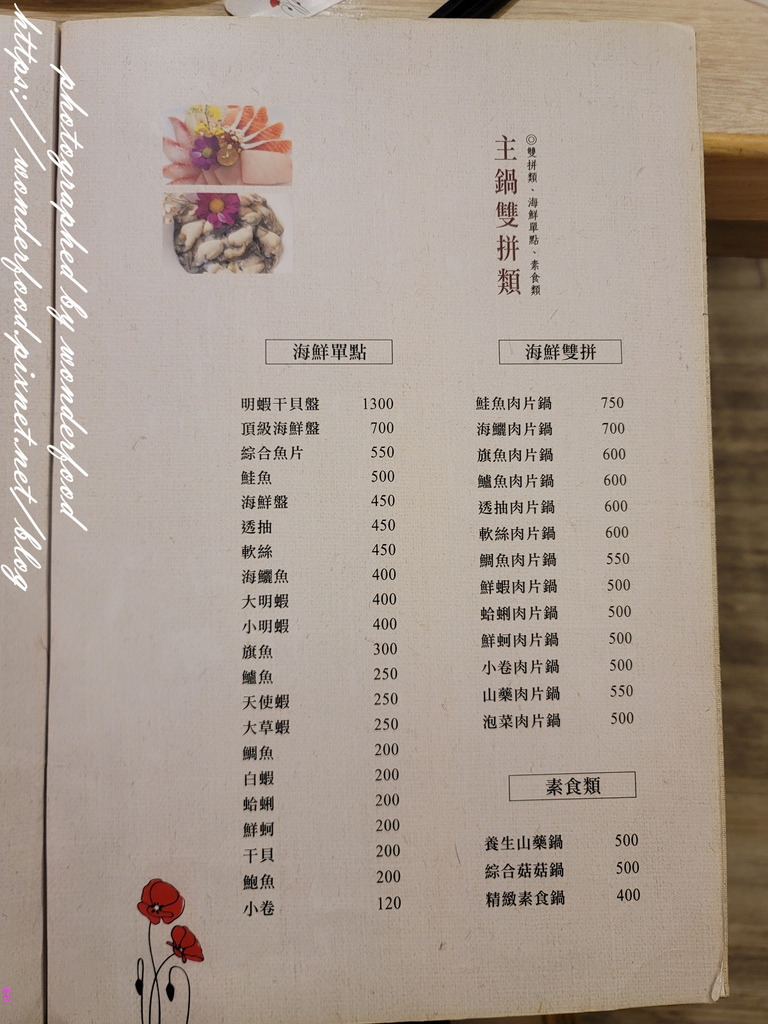 主鍋雙拼類
◎雙拼類、海鮮單點、素食類
海鮮單點
明蝦干貝盤 1300
頂級海鮮盤 700
綜合魚片 550
鮭魚 500
海鮮盤 450
透抽 450
軟絲 450
海鱺魚 400
大明蝦 400
小明蝦 400
旗魚 300
鱸魚 250
天使蝦 250
大草蝦 250
鯛魚 200
白蝦 200
蛤蜊 200
鮮蚵 200
干貝 200
鮑魚 200
小卷 120
海鮮雙拼
鮭魚肉片鍋 750
海鱺肉片鍋 700
旗魚肉片鍋 600
鱸魚肉片鍋 600
透抽肉片鍋 600
軟絲肉片鍋 600
鯛魚肉片鍋 550
鮮蝦肉片鍋 500
蛤蜊肉片鍋 500
鮮蚵肉片鍋 500
小卷肉片鍋 500
山藥肉片鍋 550
泡菜肉片鍋 500
素食類
養生山藥鍋 500
綜合菇菇鍋 500
精緻素食鍋 400
photographed by wonderfood
https://wonderfood.pixnet.net/blog